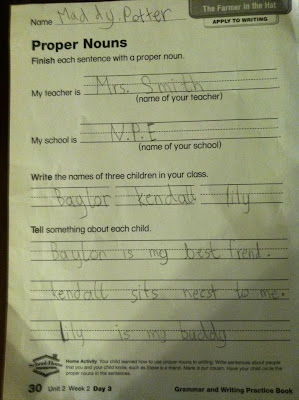 The Farmer in the Hat
Name Maddy. Potter
APPLY TO WRITING
Proper Nouns
Finish each sentence with a proper noun.
My teacher is Mrs. Smith
(name of your teacher)
My school is N.P.E
(name of your school)
Write the names of three children in your class.
Baylor kendall lily
Tell something about each child.
Baylor is my best frend.
kendall sits necst to me.
lily is my buddy
Home Activity: Your child learned how to use proper nouns in writing. Write sentences about people
that you and your child know, such as Steve is a friend. Marie is our cousin. Have your child circle the
proper nouns in the sentences.
30 Unit 2 Week 2 Day 3
Grammar and Writing Practice Book